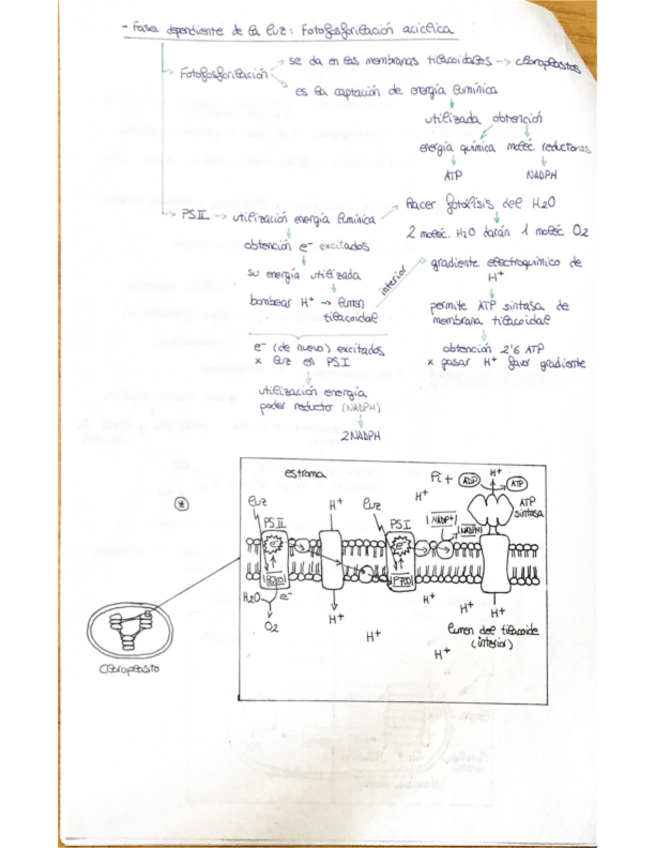 - Fase dependiente de la luz: Fotofosforilación acíclica
Fotofosforilación
se da en las membranas tilacoidales -> cloroplastos
es la captación de energía lumínica
utilizada obtención
energía química moléc reductoras
ATP NADPH
PSII -> utilización energía lumínica
Hacer fotólisis del H2O
obtención e- excitados
2 moléc. H2O darán 1 moléc O2
su energía utilizada
interior
gradiente electroquímico de
H+
bombear H+ -> lumen
tilacoidal
permite ATP sintasa de
membrana tilacoidal
e- (de nuevo) excitados
x luz en PSI
obtención 2'6 ATP
x pasar H+ favor gradiente
utilización energía
poder reductor (NADPH)
2NADPH
estroma
Pi + ADP ATP
H+
luz H+ luz H+
ATP
sintasa
PSII PSI
NADP+ NADPH
e- e-
P680 P700
H2O e-
O2
H+ H+ H+ H+ H+ H+
lumen del tilacoide
(interior)
Cloroplasto